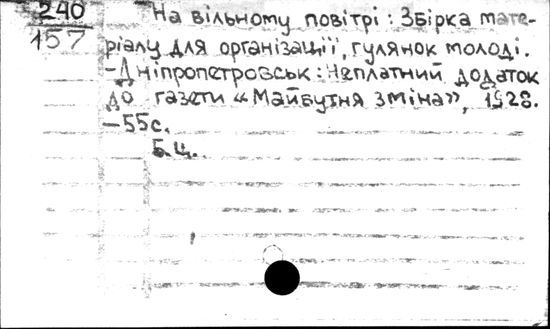 240
157
На вільному повітрі: Збірка мате-
ріалу для організації, гулянок молоді.
-Дніпропетровськ: Неплатний додаток
до газети «Майбутня зміна», 1928.
-55с.
Б.ц.